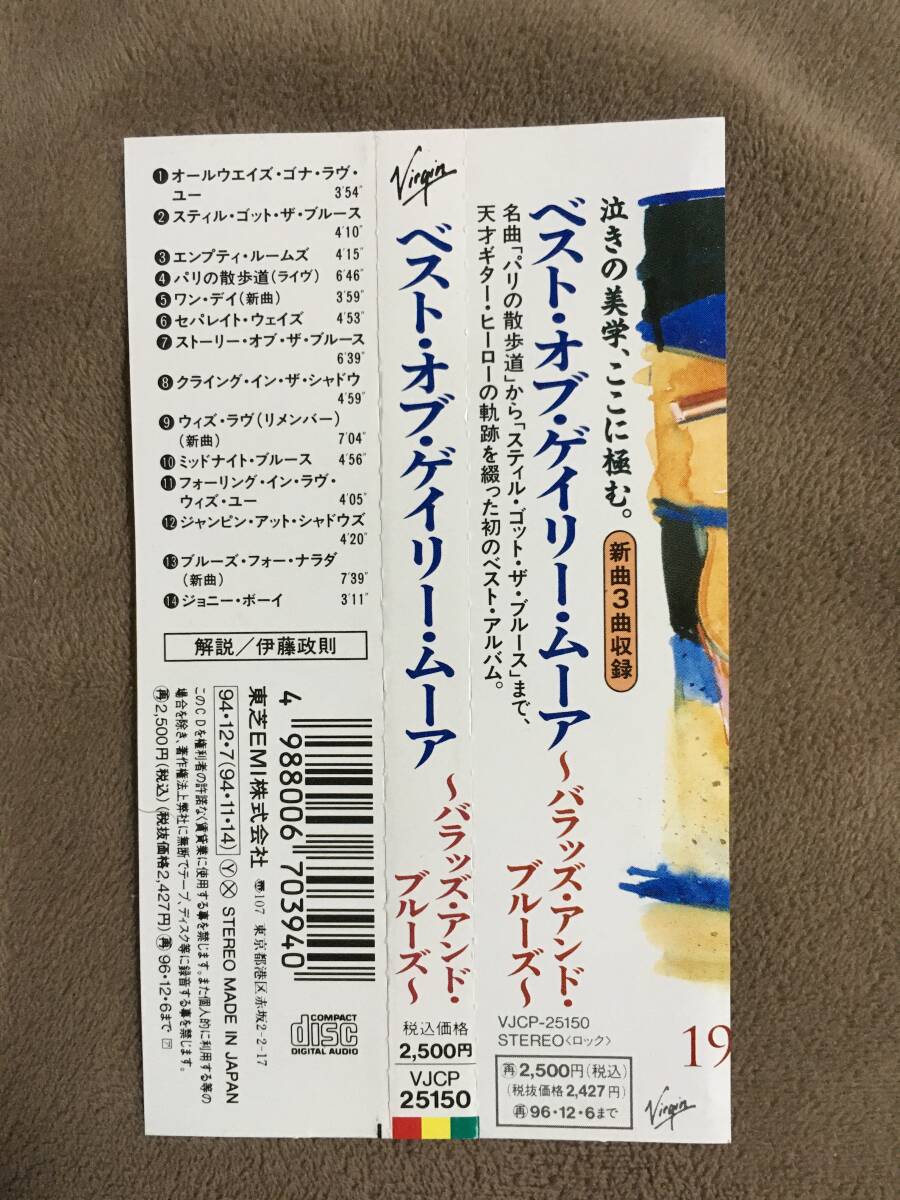 ❶オールウエイズ・ゴナ・ラヴ・
ユー 3′54″
❷スティル・ゴット・ザ・ブルース
4′10″
❸エンプティ・ルームズ 4′15″
❹パリの散歩道(ライヴ) 6′46″
❺ワン・デイ(新曲) 3′59″
❻セパレイト・ウェイズ 4′53″
❼ストーリー・オブ・ザ・ブルース
6′39″
❽クライング・イン・ザ・シャドウ
4′59″
❾ウィズ・ラヴ(リメンバー)
(新曲) 7′04″
❿ミッドナイト・ブルース 4′56″
⓫フォーリング・イン・ラヴ・
ウィズ・ユー 4′05″
⓬ジャンピン・アット・シャドウズ
4′20″
⓭ブルーズ・フォー・ナラダ
(新曲) 7′39″
⓮ジョニー・ボーイ 3′11″
解説/伊藤政則
4 988006 703940
東芝EMI株式会社 〠107 東京都港区赤坂2-2-17
94・12・7(94・11・14) Ⓨ Ⓧ STEREO MADE IN JAPAN
このCDを権利者の許諾なく賃貸業に使用する事を禁じます。また個人的に利用する等の
場合を除き、著作権法上弊社に無断でテープ、ディスク等に録音する事を禁じます。
㊢2,500円(税込)(税抜価格2,427円)㊢96・12・6まで
COMPACT
disc
DIGITAL AUDIO
Virgin
ベスト・オブ・ゲイリー・ムーア
〜バラッズ・アンド・
ブルーズ〜
税込価格
2,500円
VJCP
25150
泣きの美学、ここに極む。
新曲3曲収録
ベスト・オブ・ゲイリー・ムーア
〜バラッズ・アンド・
ブルーズ〜
名曲「パリの散歩道」から「スティル・ゴット・ザ・ブルース」まで、
天才ギター・ヒーローの軌跡を綴った初のベスト・アルバム。
VJCP-25150
STEREO〈ロック〉
再2,500円(税込)
(税抜価格2,427円)
再96・12・6まで
19
Virgin